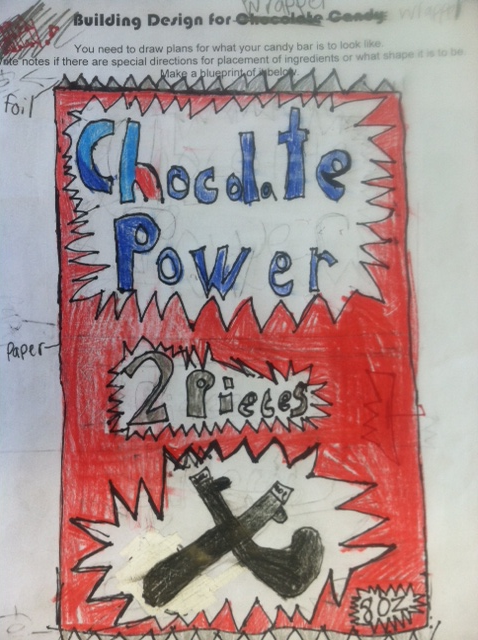 Wrapper
Building Design for Chocolate Candy wrapper
You need to draw plans for what your candy bar is to look like.
notes if there are special directions for placement of ingredients or what shape it is to be.
Make a blueprint of it below.
foil
Chocolate
Power
Paper
2 Pieces
8oz